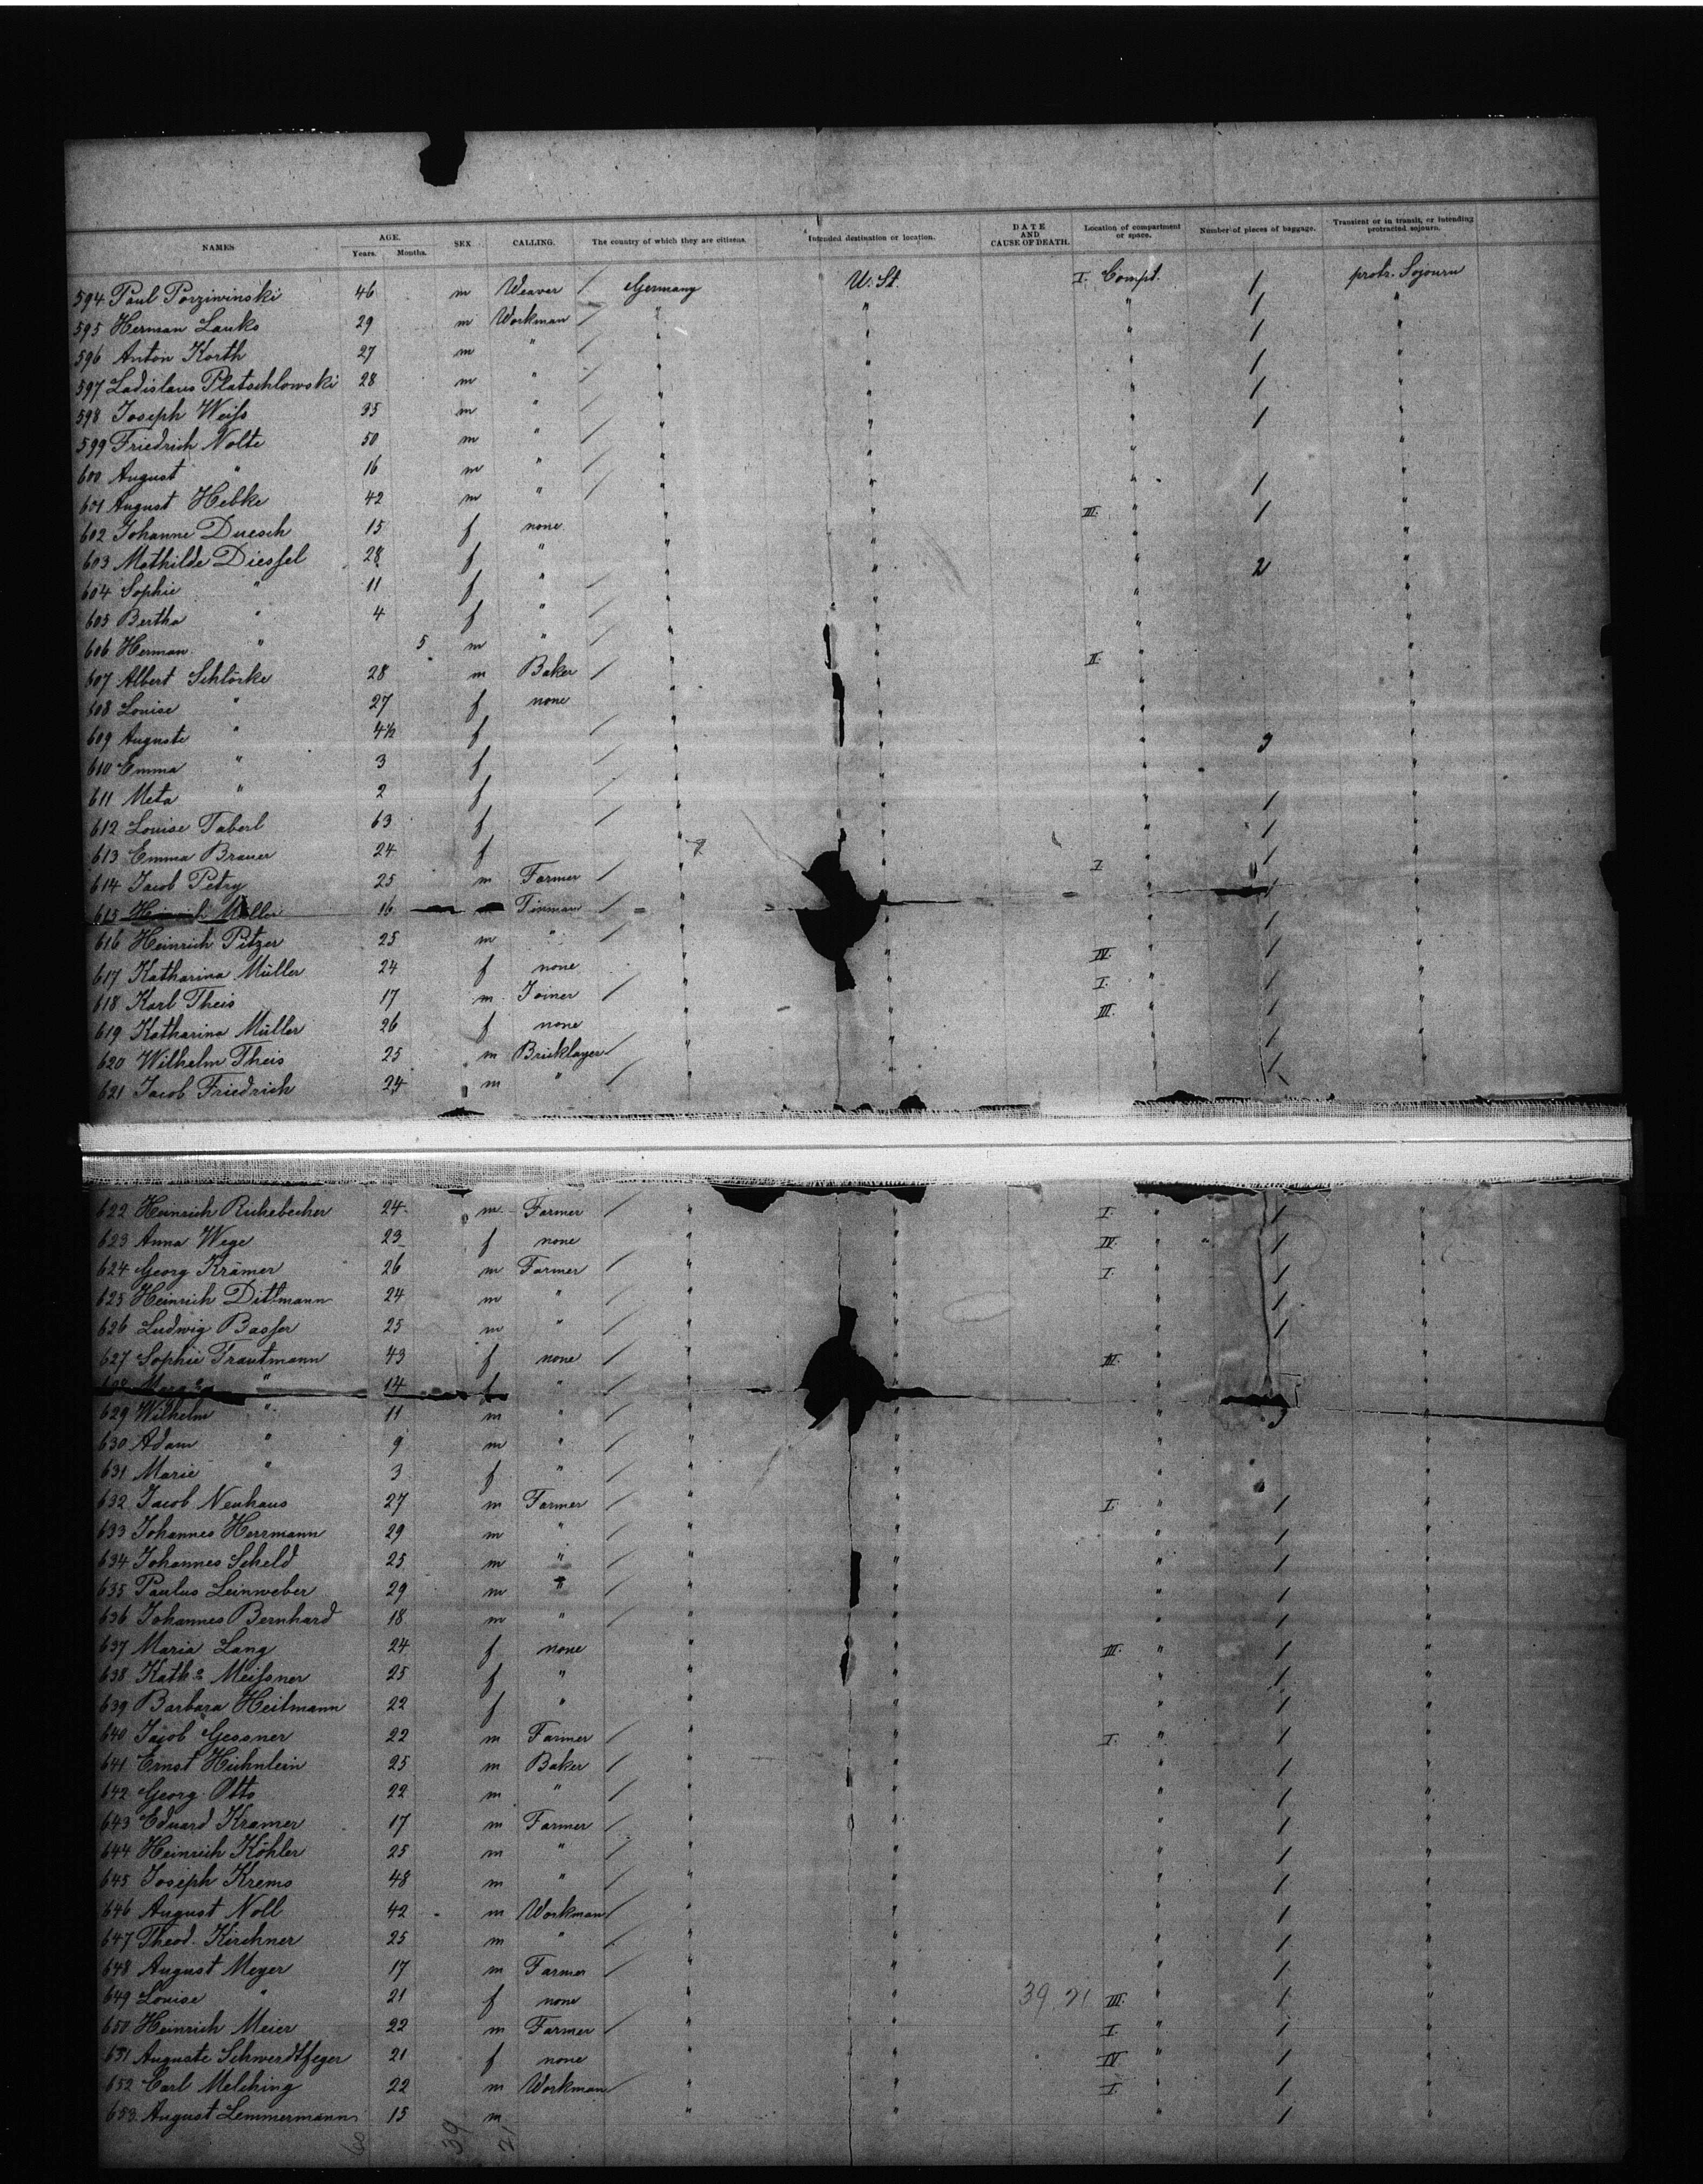 NAMES AGE. Years. Months. SEX CALLING. The country of which they are citizens. Intended destination or location. DATE AND CAUSE OF DEATH. Location of compartment or space. Number of pieces of baggage. Transient or in transit, or intending protracted sojourn.
594 Paul Porziwinski 46 m Weaver / Germany U. St. I. Compt. 1 protr. Sojourn
595 Herman Lauks 29 m Workman / " " " 1 "
596 Anton Korth 27 m " / " " " 1 "
597 Ladislaus Platschlowski 28 m " / " " " 1 "
598 Joseph Weiss m " / " " " 1 "
599 Friedrich Nolte 50 m " / " " " 1 "
600 August " 16 m " / " " " "
601 August Hebke 42 m " / " " " 1 "
602 Johanne Duesch 15 f none " " III. " 1 "
603 Mathilde Diessel 28 f " " " " "
604 Sophie " 11 f " / " " " 2 "
605 Bertha " 4 f " / " " " "
606 Herman " 5 m " / " " " "
607 Albert Schlörke 28 m Baker / " " II. " "
608 Louise " 27 f none " " " "
609 Auguste " 4½ f / " " " 3 "
610 Emma " 3 f / " " " "
611 Meta " 2 f / " " " "
612 Louise Taberl 63 f / " " " 1 "
613 Emma Brauer 24 f " " " 1 "
614 Jacob Petry 25 m Farmer / " " I. " 1 "
615 Heinrich Müller 16 Tinman / " " " 1 "
616 Heinrich Pitzer 25 m " / " " " 1 "
617 Katharina Müller 24 f none " " IV. " 1 "
618 Karl Theis 17 m Joiner / " " I. " 1 "
619 Katharina Müller 26 f none " " III. " 1 "
620 Wilhelm Theis 25 m Bricklayer / " " " 1 "
621 Jacob Friedrich 24 m " / " " " 1 "
622 Heinrich 24 m Farmer / " " I. " 1 "
623 Anna Wege 23 f none " " IV. " 1 "
624 Georg Krämer 26 m Farmer / " " I. " 1 "
625 Heinrich Dittmann 24 m " / " " " 1 "
626 Ludwig Basser 25 m " / " " " 1 "
627 Sophie Trautmann 43 f none / " " " "
628 " 14 f " / " " " "
629 Wilhelm " 11 m " / " " " 3 "
630 Adam " 9 m " / " " " "
631 Marie " 3 f " / " " " "
632 Jacob Neuhaus 27 m Farmer / " " I. " 1 "
633 Johannes Herrmann 29 m " / " " " 1 "
634 Johannes Scheld 25 m " / " " " 1 "
635 Paulus Leinweber 29 m " / " " " 1 "
636 Johannes Bernhard 18 m " / " " " 1 "
637 Maria Lang 24 f none " " III. " 1 "
638 Kath. Meissner 25 f " " " " 1 "
639 Barbara Heitmann 22 f " " " " 1 "
640 Jacob Gessner 22 m Farmer / " " I. " 1 "
641 Ernst Hühnlein 25 m Baker / " " " 1 "
642 Georg Otto 22 m " / " " " 1 "
643 Eduard Kramer 17 m Farmer / " " " 1 "
644 Heinrich Köhler 25 m " / " " " 1 "
645 Joseph Krems 48 m " / " " " 1 "
646 August Noll 42 m Workman / " " " 1 "
647 Theod. Kirchner 25 m " / " " " 1 "
648 August Meyer 17 m Farmer / " " " 1 "
649 Louise " 21 f none " " 39 21 III. " 1 "
650 Heinrich Meier 22 m Farmer / " " I. " 1 "
651 Auguste Schwerdtfeger 21 f none " " IV. " 1 "
652 Carl Melching 22 m Workman / " " I. " 1 "
653 August Lemmermann 15 m " " " 1 "
60 39 21